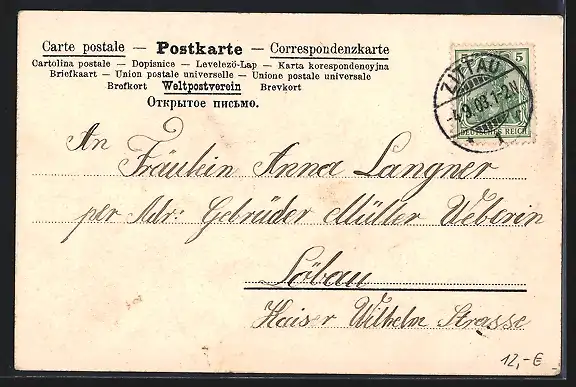 Carte postale — Postkarte — Correspondenzkarte
Cartolina postale — Dopisnice — Levelező-Lap — Karta korespondencyjna
Briefkaart — Union postale universelle — Unione postale universale
Brefkort Weltpostverein Brevkort
Открытое письмо.
5 5
ZITTAU
9.03.1-2N
DEUTSCHES REICH
* 1
An
Fräulein Anna Langner
per Adr: Gebrüder Müller Weberin
Löbau
Kaiser Wilhelm Strasse
12,-€